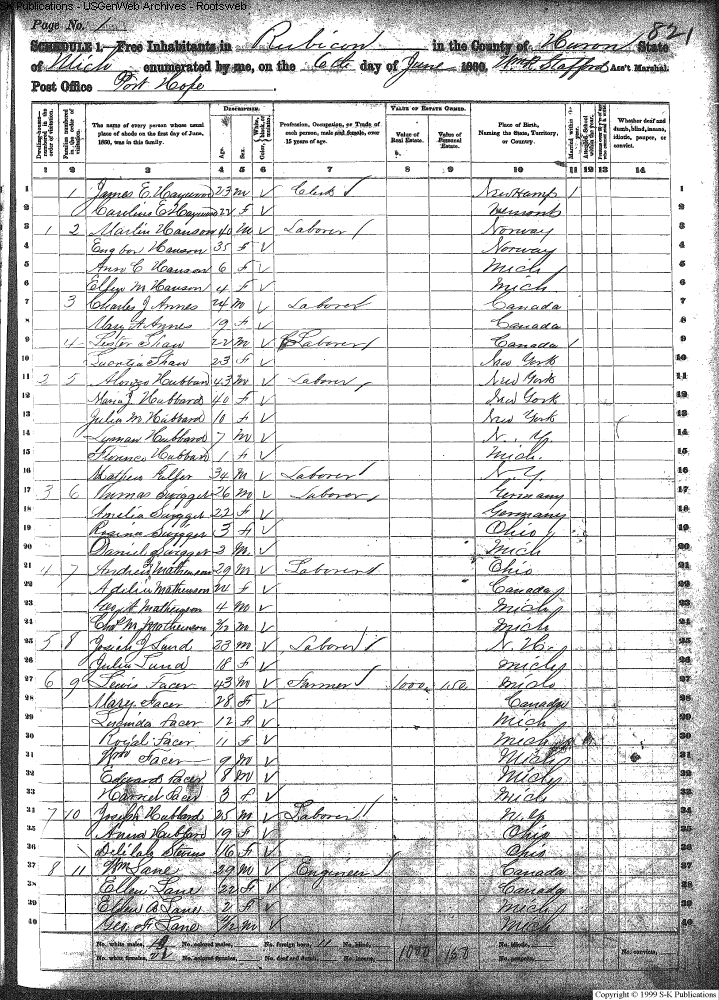 S-K Publications - USGenWeb Archives - Rootsweb
Page No. 1
821
SCHEDULE 1.—Free Inhabitants in Rubicon in the County of Huron State
of Mich enumerated by me, on the 6th day of June 1860. Wm H. Stafford Ass't Marshal.
Post Office Port Hope
Dwelling-houses—numbered in the order of visitation.
Families numbered in the order of visitation.
The name of every person whose usual place of abode on the first day of June, 1860, was in this family.
DESCRIPTION.
Age.
Sex.
Color, White, black, or mulatto.
Profession, Occupation, or Trade of each person, male and female, over 15 years of age.
VALUE OF ESTATE OWNED.
Value of Real Estate.
Value of Personal Estate.
Place of Birth, Naming the State, Territory, or Country.
Married within the year.
Attended School within the year.
Whether deaf and dumb, blind, insane, idiotic, pauper, or convict.
1 2 3 4 5 6 7 8 9 10 11 12 13 14
1 1 James E. Haywood 23 m ✓ Clerk New Hamp 1 1
2 Caroline E Haywood 22 f ✓ Vermont 2
3 1 2 Martin Hanson 40 m ✓ Laborer Norway 3
4 Hanson 35 f ✓ Norway 4
5 Ann C Hanson 6 f ✓ Mich 5
6 M Hanson 4 f ✓ Mich 6
7 3 Charles J Annes 24 m ✓ Laborer Canada 7
8 Mary A Annes 19 f ✓ Canada 8
9 4 Lester Shaw 22 m ✓ Laborer Canada 1 9
10 Shaw 23 f ✓ New York 10
11 2 5 Alonzo Hubbard 43 m ✓ Laborer New York 11
12 Hubbard 40 f ✓ New York 12
13 Julia M Hubbard 10 f ✓ New York 13
14 Lyman Hubbard 7 m ✓ N. Y. 14
15 Florence Hubbard 1 f ✓ Mich. 15
16 34 m ✓ Laborer N. Y. 16
17 3 6 Thomas 26 m ✓ Laborer Germany 17
18 Amelia 22 f ✓ Germany 18
19 Rosina 3 f ✓ Ohio 19
20 Daniel 3 m ✓ Mich 20
21 4 7 Andrew Mathewson 29 m ✓ Laborer Ohio 21
22 Adelia Mathewson 22 f ✓ Canada 22
23 Mathewson 4 m ✓ Mich 23
24 Chas M Mathewson m ✓ Mich 24
25 5 8 Josiah J Lund 23 m ✓ Laborer N. H. 25
26 Julia Lund 18 f ✓ Mich 26
27 6 9 Lewis Facer 43 m ✓ Farmer 1000 150 27
28 Mary Facer 28 f ✓ Canada 28
29 Lucinda Facer 12 f ✓ Mich 29
30 Royal Facer 11 f ✓ Mich 30
31 Wm Facer 9 m ✓ Mich 31
32 Edward Facer 8 m ✓ Mich 32
33 Harriet Facer 3 f ✓ Mich 33
34 7 10 Joseph Hubbard 25 m ✓ Laborer N. Y. 34
35 Hubbard 19 f ✓ Ohio 35
36 Delilah Stevens 16 f ✓ Ohio 36
37 8 11 Wm Lane 29 m ✓ Engineer Canada 37
38 Ellen Lane 22 f ✓ Canada 38
39 B Lane 2 f ✓ Mich 39
40 Geo Lane m ✓ Mich 40
No. white males, No. colored males, No. foreign born, 11 No. blind, 1000 150 No. idiotic,
No. white females, No. colored females, No. deaf and dumb, No. insane, No. paupers, No. convicts,
Copyright © 1999 S-K Publications